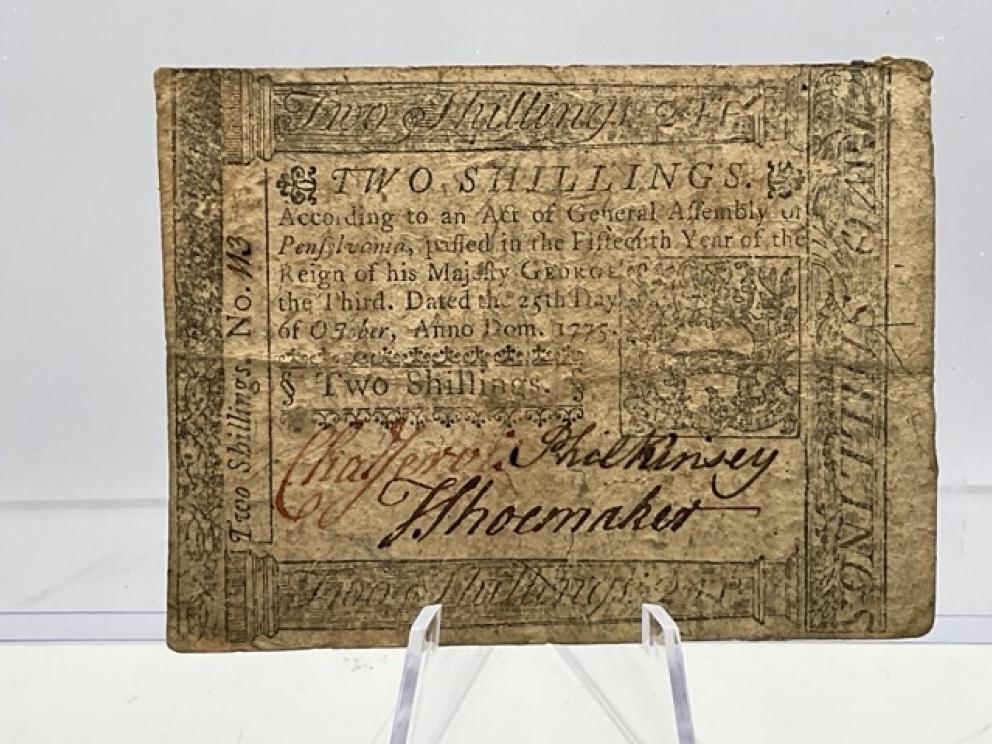 Two Shillings. 2s.
TWO SHILLINGS.
According to an Act of General Assembly of
Pensylvania, passed in the Fifteenth Year of the
Reign of his Majesty GEORGE
the Third. Dated the 25th Day
of October, Anno Dom. 1775.
§ Two Shillings. §
Phil Kinsey
Shoemaker
Two Shillings. No. 113
TWO SHILLINGS
Two Shillings.